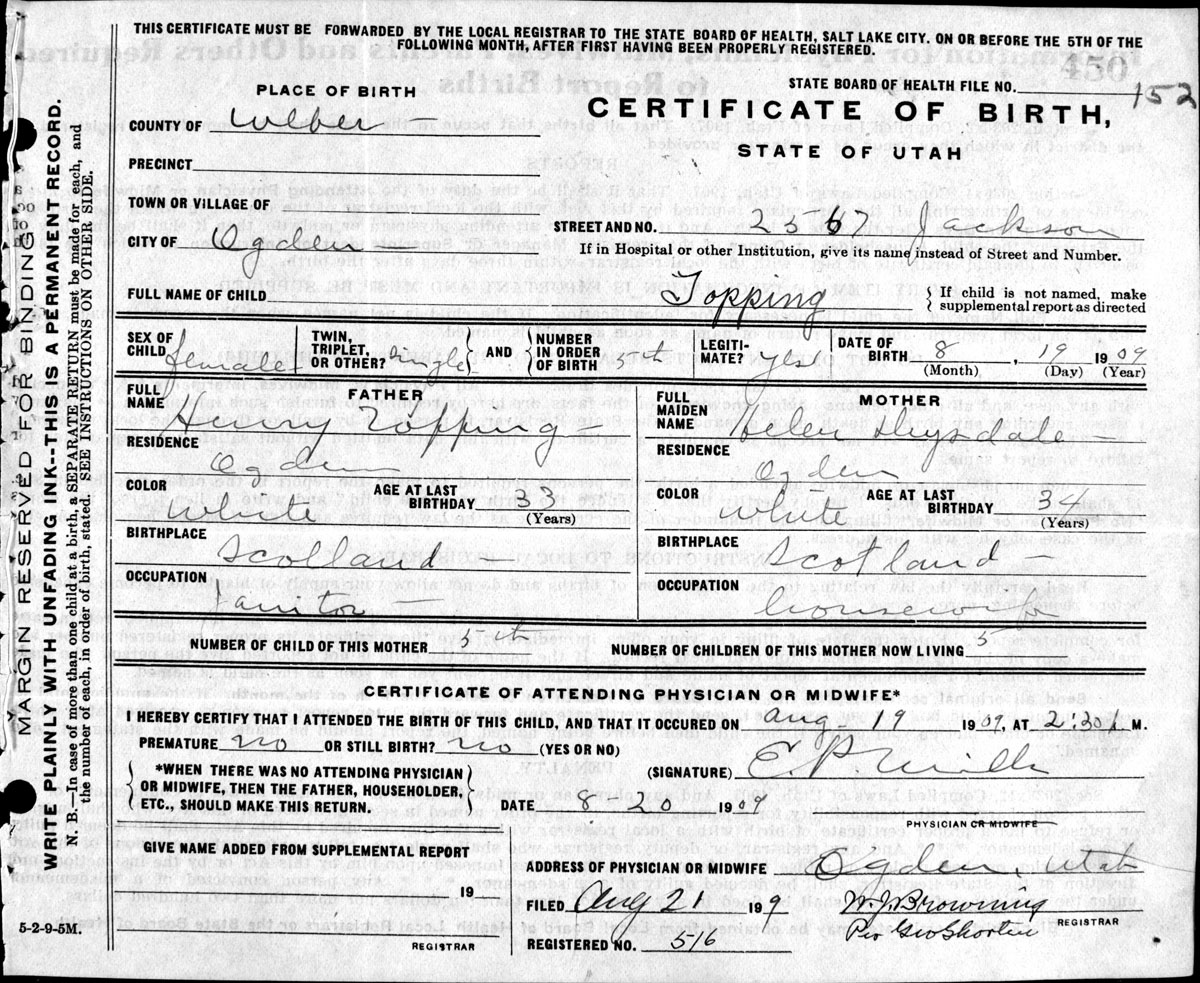 THIS CERTIFICATE MUST BE FORWARDED BY THE LOCAL REGISTRAR TO THE STATE BOARD OF HEALTH, SALT LAKE CITY, ON OR BEFORE THE 5TH OF THE
FOLLOWING MONTH, AFTER FIRST HAVING BEEN PROPERLY REGISTERED.
450
STATE BOARD OF HEALTH FILE NO. 152
PLACE OF BIRTH
CERTIFICATE OF BIRTH,
STATE OF UTAH
COUNTY OF Weber
PRECINCT
TOWN OR VILLAGE OF
STREET AND NO. 2567 Jackson
CITY OF Ogden
If in Hospital or other Institution, give its name instead of Street and Number.
FULL NAME OF CHILD Topping
If child is not named, make
supplemental report as directed
SEX OF CHILD female
TWIN, TRIPLET, OR OTHER? single
AND NUMBER IN ORDER OF BIRTH 5th
LEGITIMATE? yes
DATE OF BIRTH 8, 19 1909
(Month) (Day) (Year)
FATHER
FULL NAME Henry Topping
RESIDENCE
Ogden
COLOR White
AGE AT LAST BIRTHDAY 33
(Years)
BIRTHPLACE
Scotland
OCCUPATION
Janitor
MOTHER
FULL MAIDEN NAME Helen Drysdale
RESIDENCE
Ogden
COLOR White
AGE AT LAST BIRTHDAY 34
(Years)
BIRTHPLACE
Scotland
OCCUPATION
housewife
NUMBER OF CHILD OF THIS MOTHER 5th
NUMBER OF CHILDREN OF THIS MOTHER NOW LIVING 5
CERTIFICATE OF ATTENDING PHYSICIAN OR MIDWIFE*
I HEREBY CERTIFY THAT I ATTENDED THE BIRTH OF THIS CHILD, AND THAT IT OCCURED ON Aug 19 1909, AT 2:30 M.
PREMATURE no OR STILL BIRTH? no (YES OR NO)
*WHEN THERE WAS NO ATTENDING PHYSICIAN
OR MIDWIFE, THEN THE FATHER, HOUSEHOLDER,
ETC., SHOULD MAKE THIS RETURN.
(SIGNATURE) E. P. Mills
DATE 8 20 1909
PHYSICIAN OR MIDWIFE
GIVE NAME ADDED FROM SUPPLEMENTAL REPORT
19
REGISTRAR
ADDRESS OF PHYSICIAN OR MIDWIFE Ogden, Utah
FILED Aug 21 199
W. J. Browning
REGISTRAR
Per Geo Shorten
REGISTERED NO. 516
5-2-9-5M.
MARGIN RESERVED FOR BINDING
WRITE PLAINLY WITH UNFADING INK--THIS IS A PERMANENT RECORD.
N. B.—In case of more than one child at a birth, a SEPARATE RETURN must be made for each, and
the number of each, in order of birth, stated. SEE INSTRUCTIONS ON OTHER SIDE.